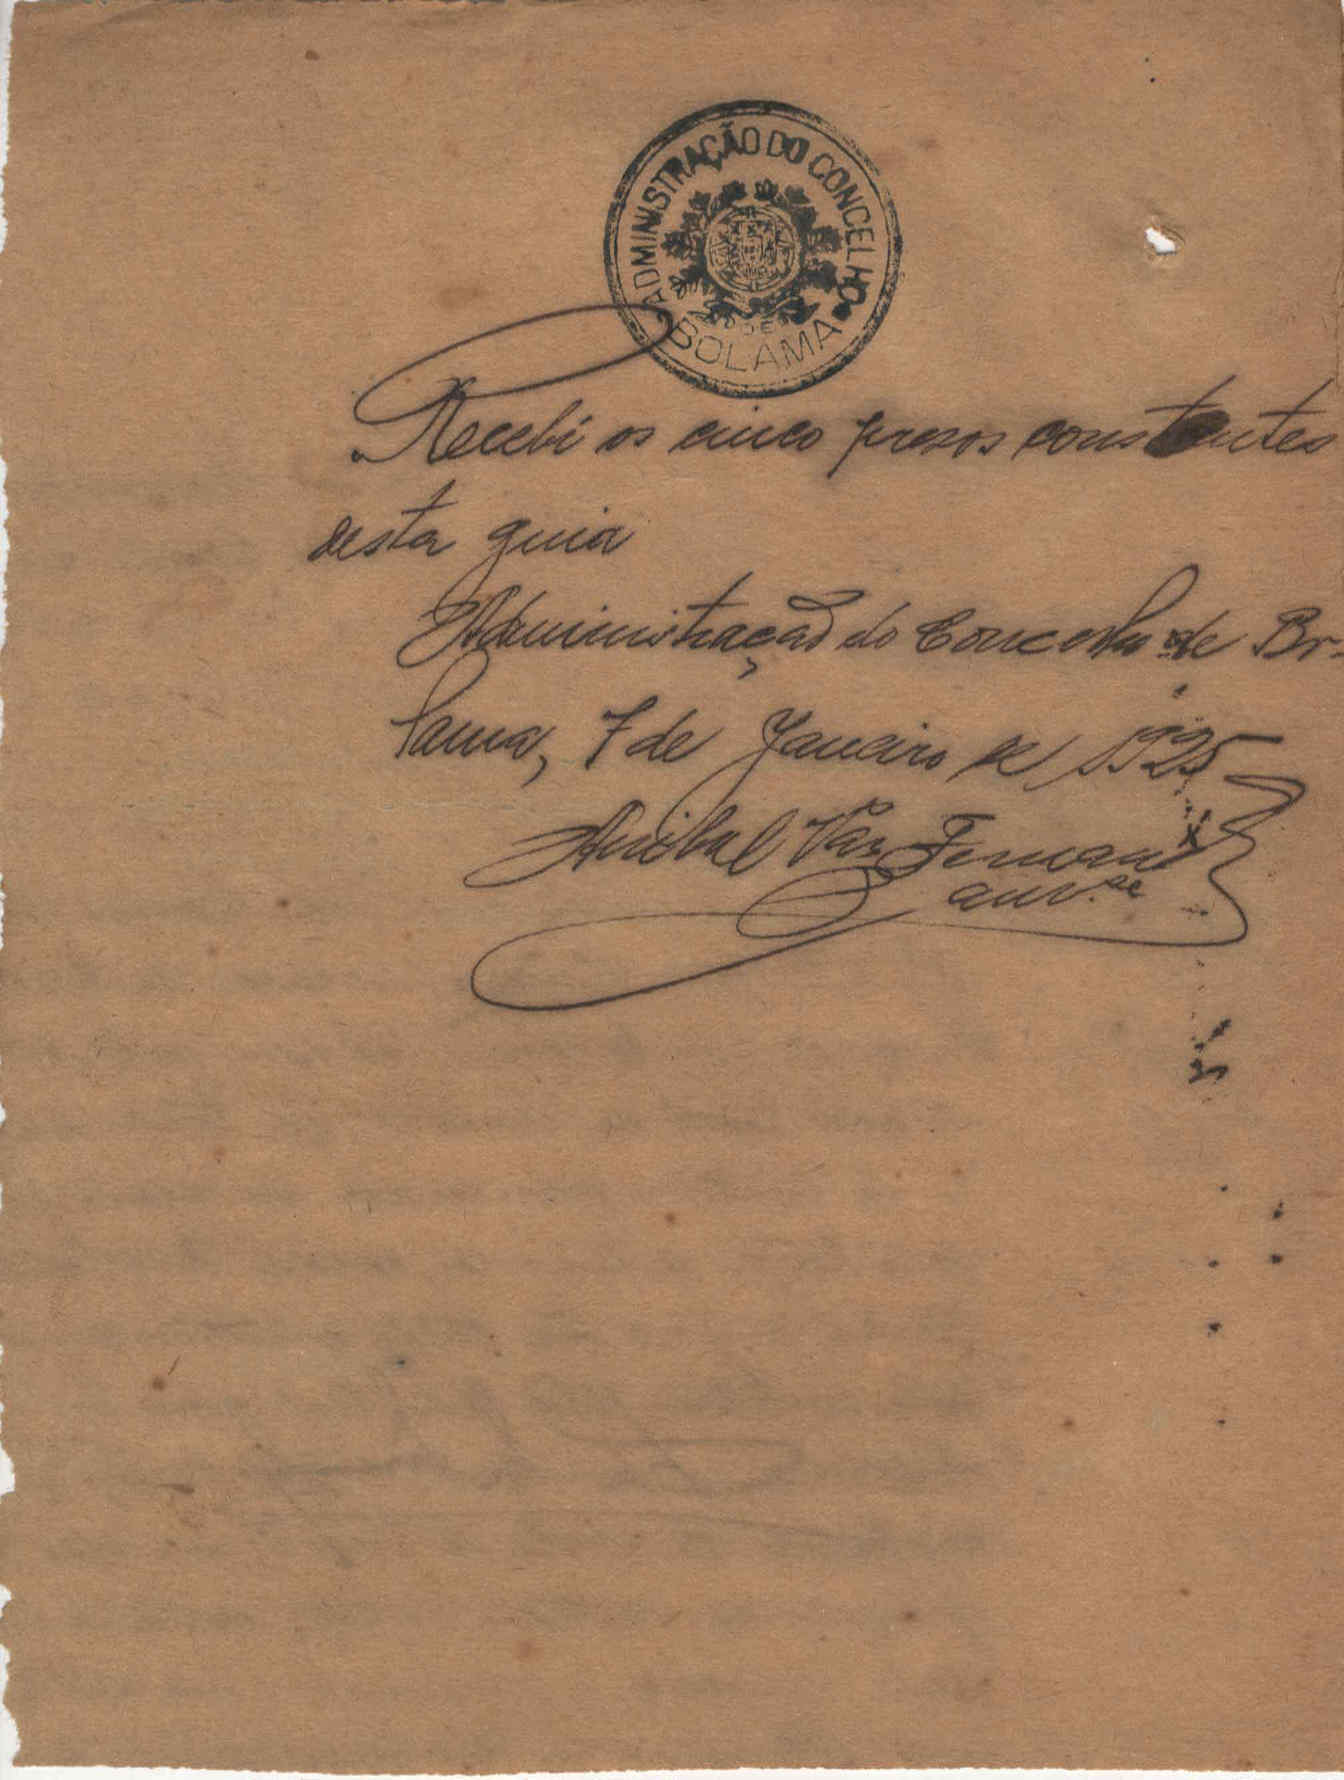 ADMINISTRAÇÃO DO CONCELHO
DE
BOLAMA
Recebi os cinco presos constantes
desta guia
Administração do Concelho de Bo-
lama, 7 de Janeiro de 1925
Anibal Vaz Fernand